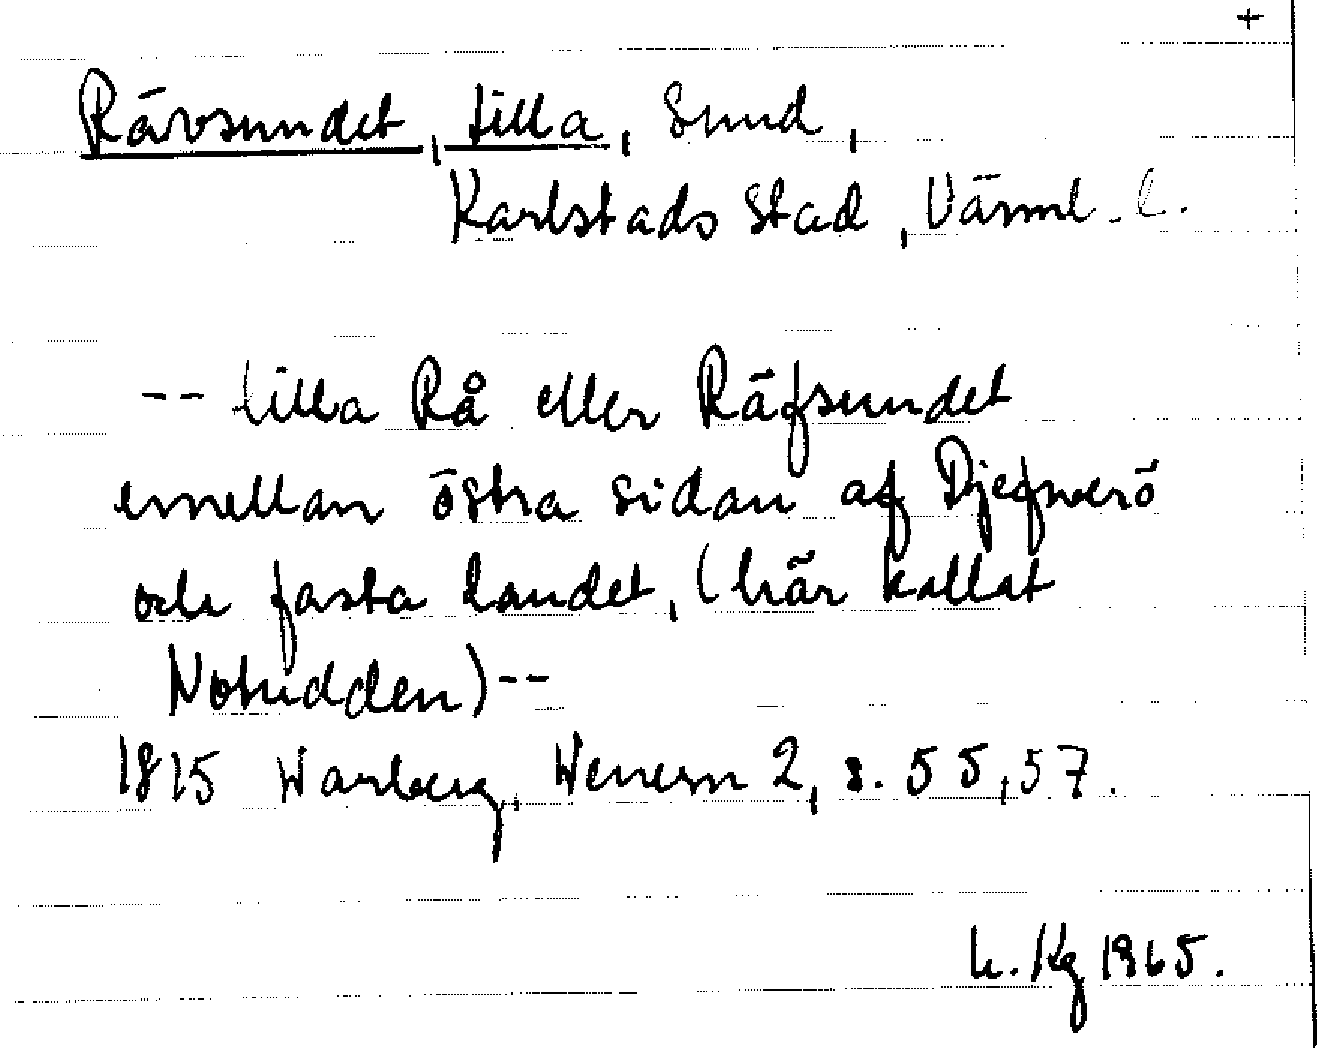 +
Rävsundet, Lilla, Sund,
Karlstads stad, Värml. l.
-- lilla Rå eller Räfsundet
emellan östra sidan af Djefverö
och fasta landet, (här kallat
Notudden) --
1815 Warberg, Wenern 2, s. 55, 57.
h. Kg 1965.